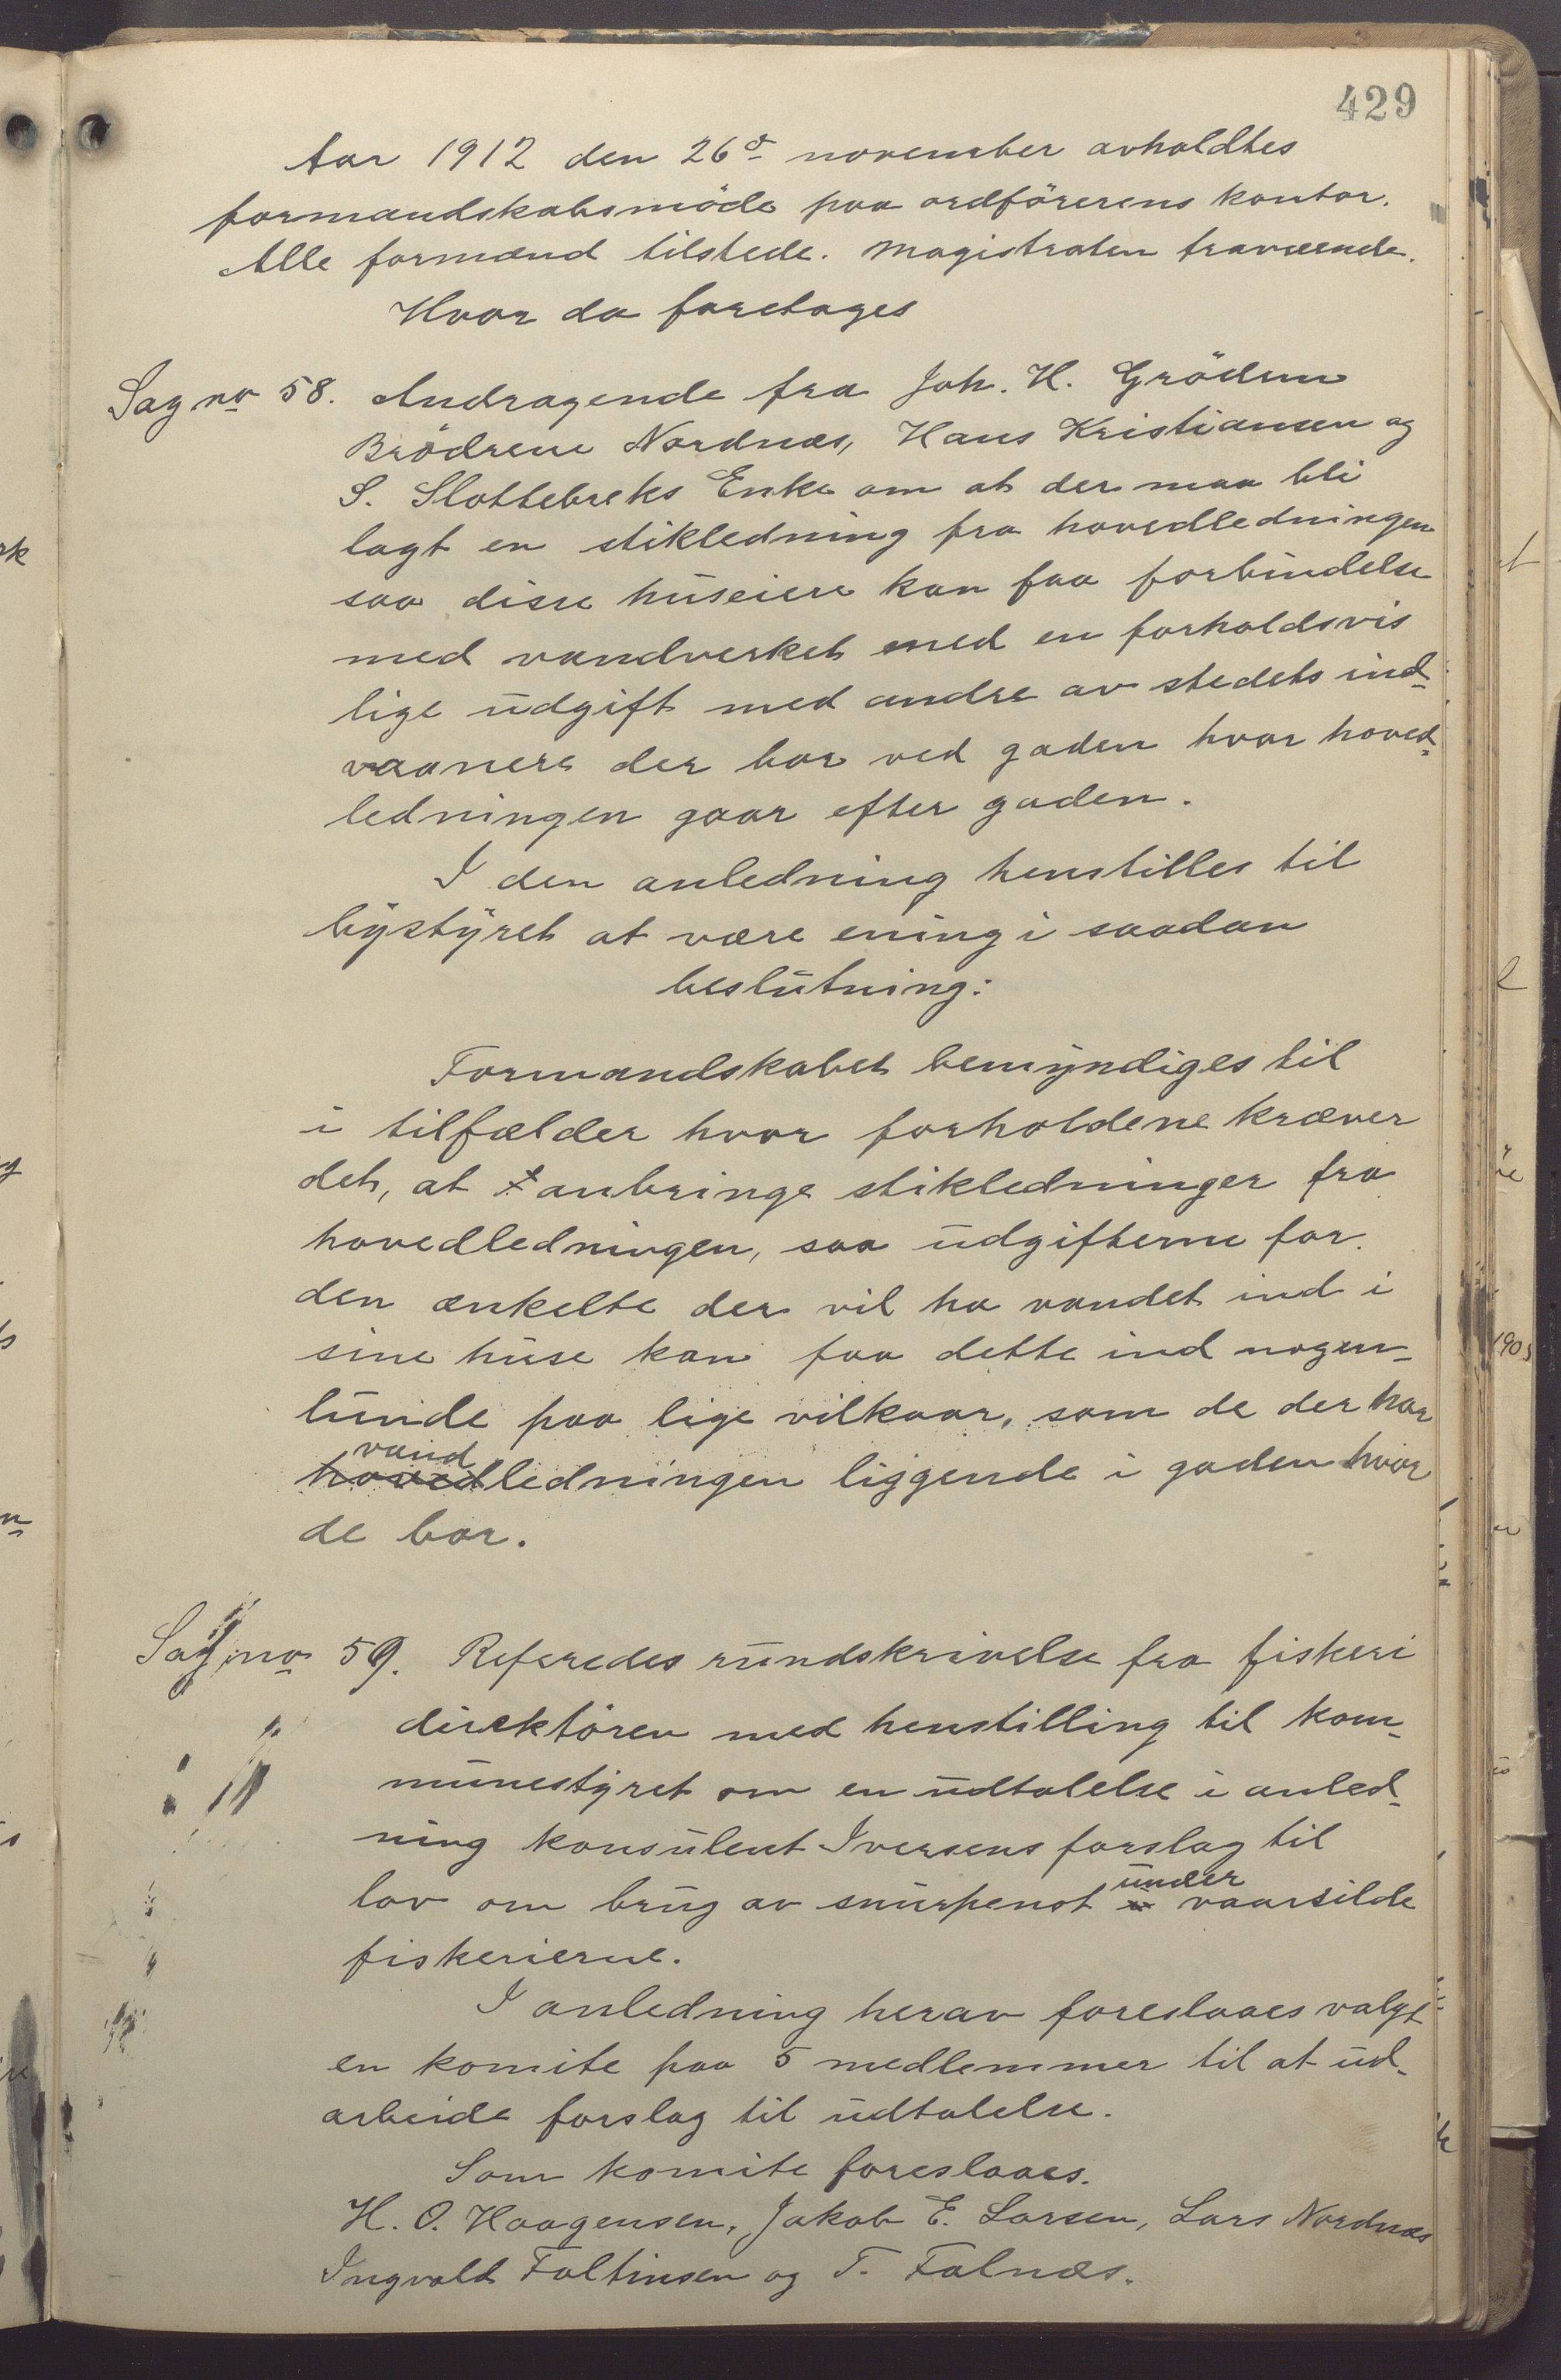 429
Aar 1912 den 26d november avholdtes
formandskabsmöde paa ordförerens kontor.
Alle formænd tilstede. Magistraten fraværende.
Hvor da foretages
Sag no 58. Andragende fra Joh. H. Grödem
Brödrene Nordnæs, Hans Kristiansen og
S. Slottebreks Enke om at der maa bli
lagt en stikledning fra hovedledningen
saa disse huseiere kan faa forbindelse
med vandverket med en forholdsvis
lige udgift med andre av stedets ind-
vaanere der bor ved gaden hvor hoved-
ledningen gaar efter gaden.
I den anledning henstilles til
bystyret at være ening i saadan
beslutning:
Formandskabet bemyndiges til
i tilfælder hvor forholdene kræver
det, at anbringe stikledninger fra
hovedledningen, saa udgifterne for
den enkelte der vil ha vandet ind i
sine huse kan faa dette ind nogen-
lunde paa lige vilkaar, som de der har
vand
hovedledningen liggende i gaden hvor
de bor.
Sag no 59. Referedes rundskrivelse fra fiskeri
direktören med henstilling til kom-
munestyret om en udtalelse i anled-
ning konsulent Iversens forslag til
under
lov om brug av snurpenot vaarsilde
fiskerierne.
I anledning herav foreslaaes valgt
en komite paa 5 medlemmer til at ud-
arbeide forslag til udtalelse.
Som komite foreslaaes.
H. O. Haagensen, Jakob E. Larsen, Lars Nordnæs
Ingvald Faltinsen og T. Falnæs.